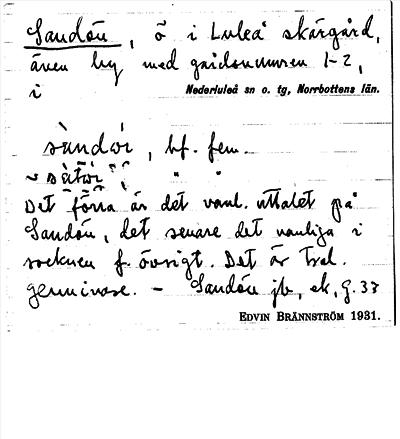 Sandön, ö i Luleå skärgård,
även by med gårdsnumren 1-2,
i
Nederluleå sn o. tg, Norrbottens län.
sàndœ́r, bf. fem.
~ sàtœ́r " "
Det förra är det vanl. uttalet på
Sandön, det senare det vanliga i
socknen f. övrigt. Det är trol.
genuinare. - Sandön jb, ek,
EDVIN BRÄNNSTRÖM 1931.